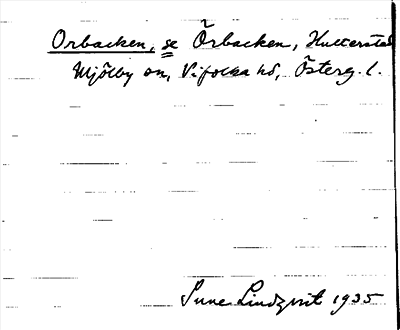 Orbacken, se Örbacken, Hulterstad
Mjölby sn, Vifolka hd, Österg. l.
Sune Lindqvist 1935